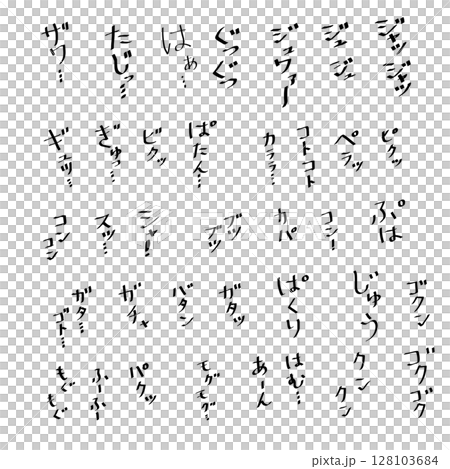 ジャッ
ジャッ
ジュ
ジュ
ジュワァー
ぐっぐっ
はぁ…
たじっ…
ザワ…
ピクッ
ペラッ
コトコト
カララ…
ぱたん…
ビクッ
ぎゅっ…
ギュッ…
ぷは
コンー
カパ
ブツ
ブツ
シャー
スッ…
コン
コン
ゴクン
じゅう
ぱくり
ガタッ
バタン
ガチャ
ガタ…
ゴト…
ゴクゴク
クン
クン
はむ…
あーん
モグモグ…
パクッ
ふーふー
もぐ
もぐ
128103684